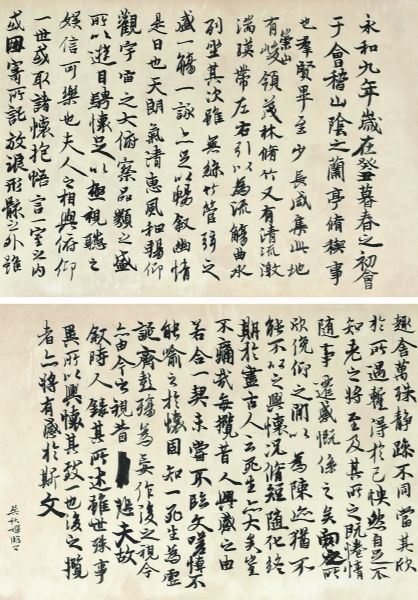 永和九年歲在癸丑暮春之初會
于會稽山陰之蘭亭脩禊事
也羣賢畢至少長咸集此地
有崇山峻領茂林脩竹又有清流激
湍暎帶左右引以為流觴曲水
列坐其次雖無絲竹管弦之
盛一觴一詠亦足以暢叙幽情
是日也天朗氣清惠風和暢仰
觀宇宙之大俯察品類之盛
所以遊目騁懷足以極視聽之
娛信可樂也夫人之相與俯仰
一世或取諸懷抱悟言一室之內
或因寄所託放浪形骸之外雖
趣舍萬殊靜躁不同當其欣
於所遇暫得於己怏然自足不
知老之將至及其所之既惓情
隨事遷感慨係之矣向之所
欣俛仰之閒以為陳迹猶不
能不以之興懷況脩短隨化終
期於盡古人云死生亦大矣豈
不痛哉每攬昔人興感之由
若合一契未嘗不臨文嗟悼不
能喻之於懷固知一死生為虛
誕齊彭殤為妄作後之視今
亦由今之視昔悲夫故
叙時人錄其所述雖世殊事
異所以興懷其致一也後之攬
者亦將有感於斯文